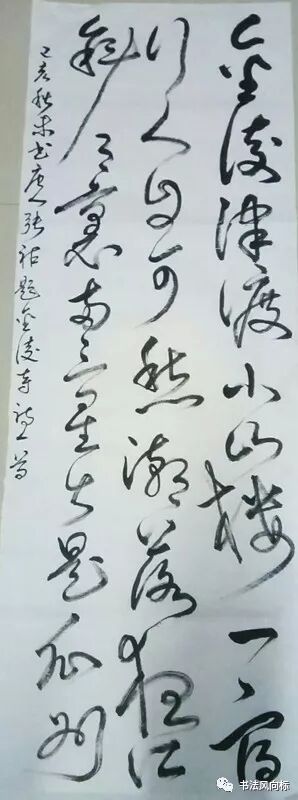 金陵津渡小山楼一宿
行人自可愁潮落夜江
斜月裏两三星火是瓜州
己亥秋末书唐人张祜题金陵寺诗一首
书法风向标